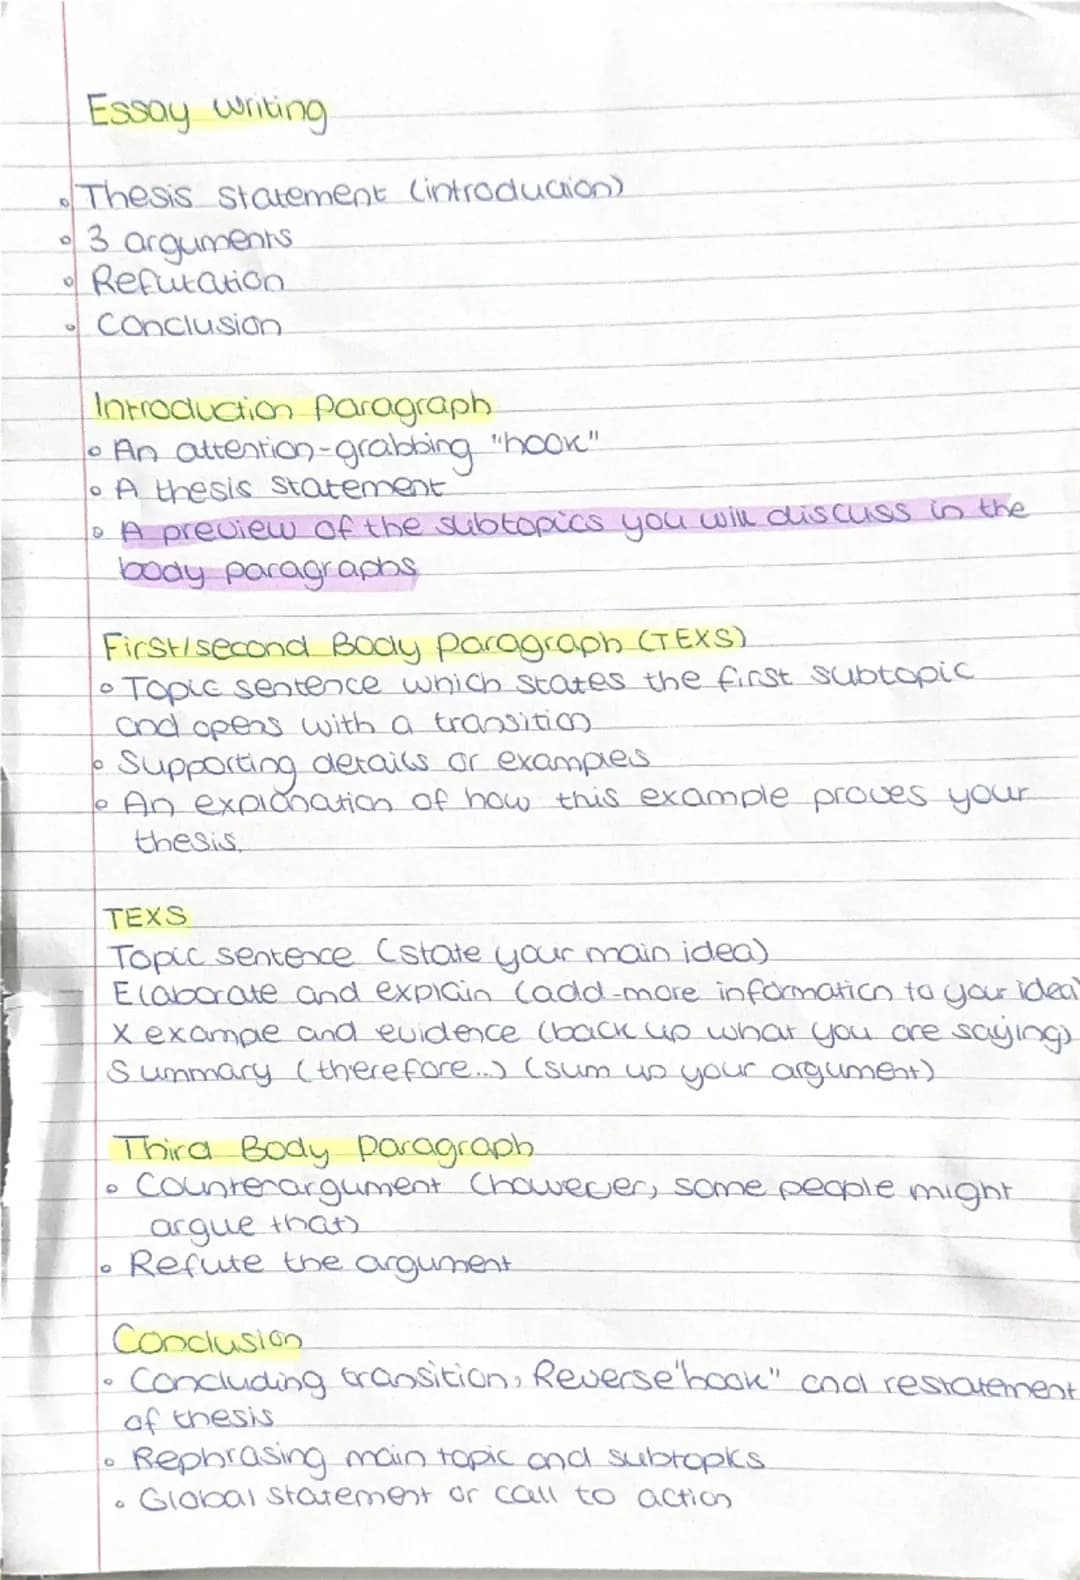 Essay writing
Thesis statement (introduction)
3 arguments
Refutation
Conclusion
Introduction Paragraph
An attention-grabbing "hook"
A thesis statement
A preview of the subtopics you will discuss in the
body paragraphs
First/second Body Paragraph (TEXS)
Topic sentence which states the first subtopic
and opens with a transition
Supporting details or examples
An explanation of how this example proves your
thesis.
TEXS
Topic sentence (state your main idea)
Elaborate and explain (add-more information to your idea)
X example and evidence (back up what you are saying)
Summary (therefore...) (sum up your argument)
Third Body Paragraph
Counterargument (however, some people might
argue that)
Refute the argument
Conclusion
Concluding transition, Reverse "hook" and restatement
of thesis
Rephrasing main topic and subtopics
Global statement or call to action